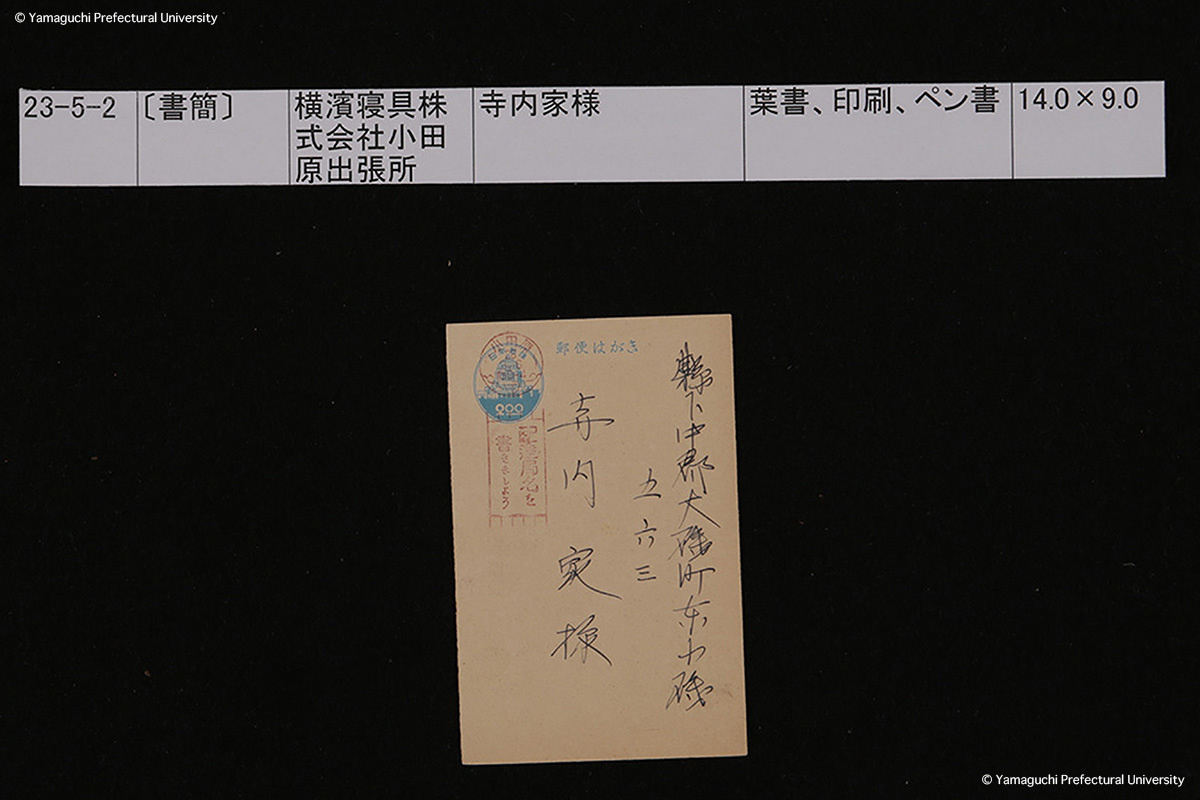 © Yamaguchi Prefectural University
23-5-2
〔書簡〕
横濱寝具株
式会社小田
原出張所
寺内家様
葉書、印刷、ペン書
14.0×9.0
郵便はがき
縣下中郡大磯町東小磯
五六三
寺内家様
配達局名を
書きましよう
200
© Yamaguchi Prefectural University